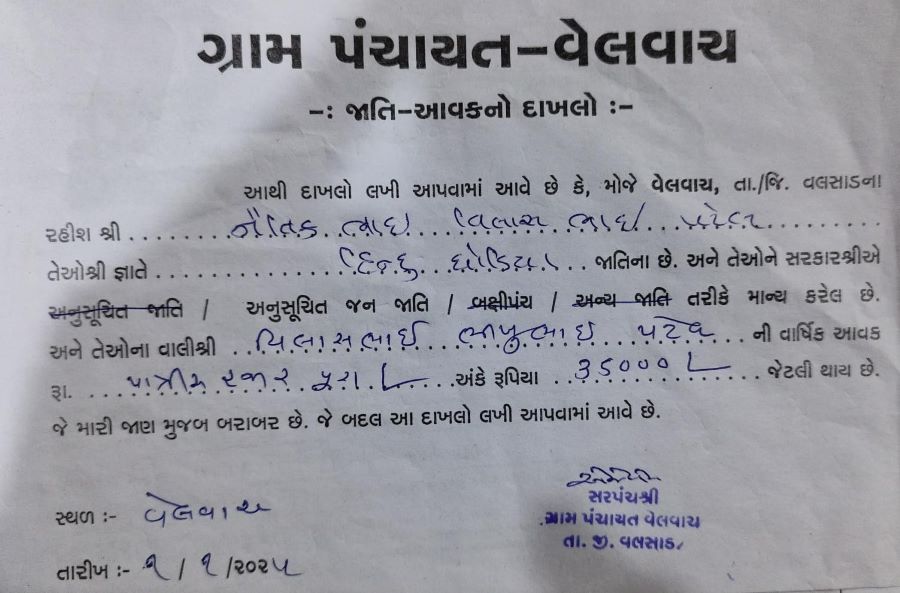 ગ્રામ પંચાયત-વેલવાચ
-: જાતિ-આવકનો દાખલો :-
આથી દાખલો લખી આપવામાં આવે છે કે, મોજે વેલવાચ, તા./જિ. વલસાડના
રહીશ શ્રી ...... નૈતિક ભાઇ વિલાસ ભાઇ પટેલ ......
તેઓશ્રી જ્ઞાતે ...... હિન્દુ ધોડિયા .. જાતિના છે. અને તેઓને સરકારશ્રીએ
અનુસૂચિત જાતિ / અનુસૂચિત જન જાતિ / બક્ષીપંચ / અન્ય જાતિ તરીકે માન્ય કરેલ છે.
અને તેઓના વાલીશ્રી .. વિલાસભાઈ ભાણુભાઇ પટેલ ... ની વાર્ષિક આવક
રૂા. ..... પાત્રીસ હજાર પુરા ..... અંકે રૂપિયા .. ૩૫૦૦૦ ... જેટલી થાય છે.
જે મારી જાણ મુજબ બરાબર છે. જે બદલ આ દાખલો લખી આપવામાં આવે છે.
સ્થળ :- વેલવાચ
સરપંચશ્રી
ગ્રામ પંચાયત વેલવાચ
તા. જી. વલસાડ
તારીખ :- ૧/૧/૨૦૨૫